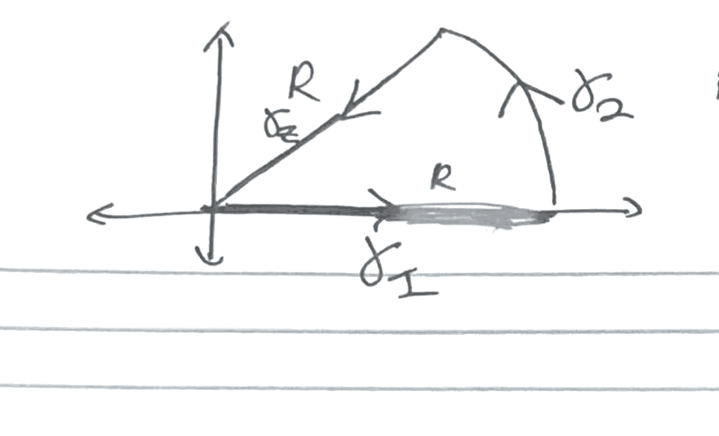 R
γ₃
γ₂
R
γ₁